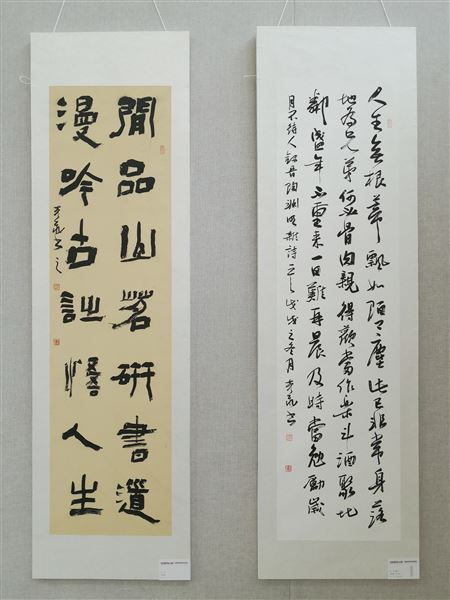 人生無根蒂飄如陌上塵此已非常身落
地為兄弟何必骨肉親得歡當作樂斗酒聚比
鄰盛年不重來一日難再晨及時當勉勵歲
月不待人 錄晉陶淵明雜詩之一 戊戌之冬月 書
閒品山茗研書道
漫吟古詩悟人生
書之